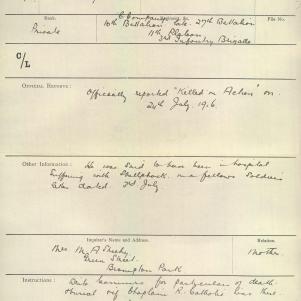 Rank.
File No.
C Company
Private
10th Battalion late 27th Battalion
11th Platoon
3rd Infantry Brigade
C/L
OFFICIAL REPORT:
Officially reported "Killed in Action" on
24th July. 1916.
Other Information:
He was said to have been in hospital
suffering with Shellshock in a fellow Soldier's
letter dated 2nd July
Inquirer's Name and Address.
Relation.
Mrs M. A. Sheehy
Mother
Green Street.
Brompton Park
Instructions:
for particulars of death
burial Chaplain R. Catholic